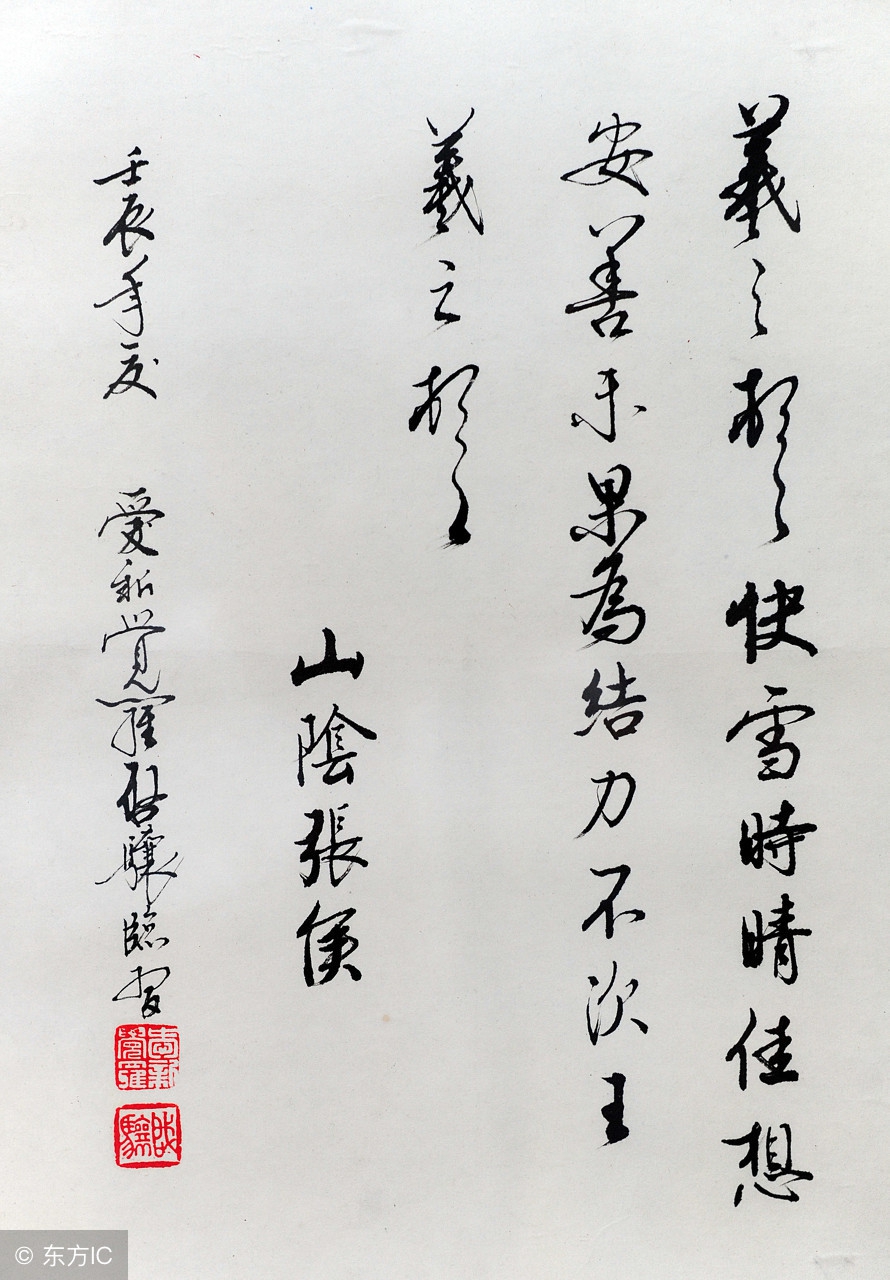 羲之頓首快雪時晴佳想
安善未果為結力不次王
羲之頓首
山陰張侯
壬辰年夏 愛新覺羅启驤臨習
愛新覺羅
啟驤
© 东方IC